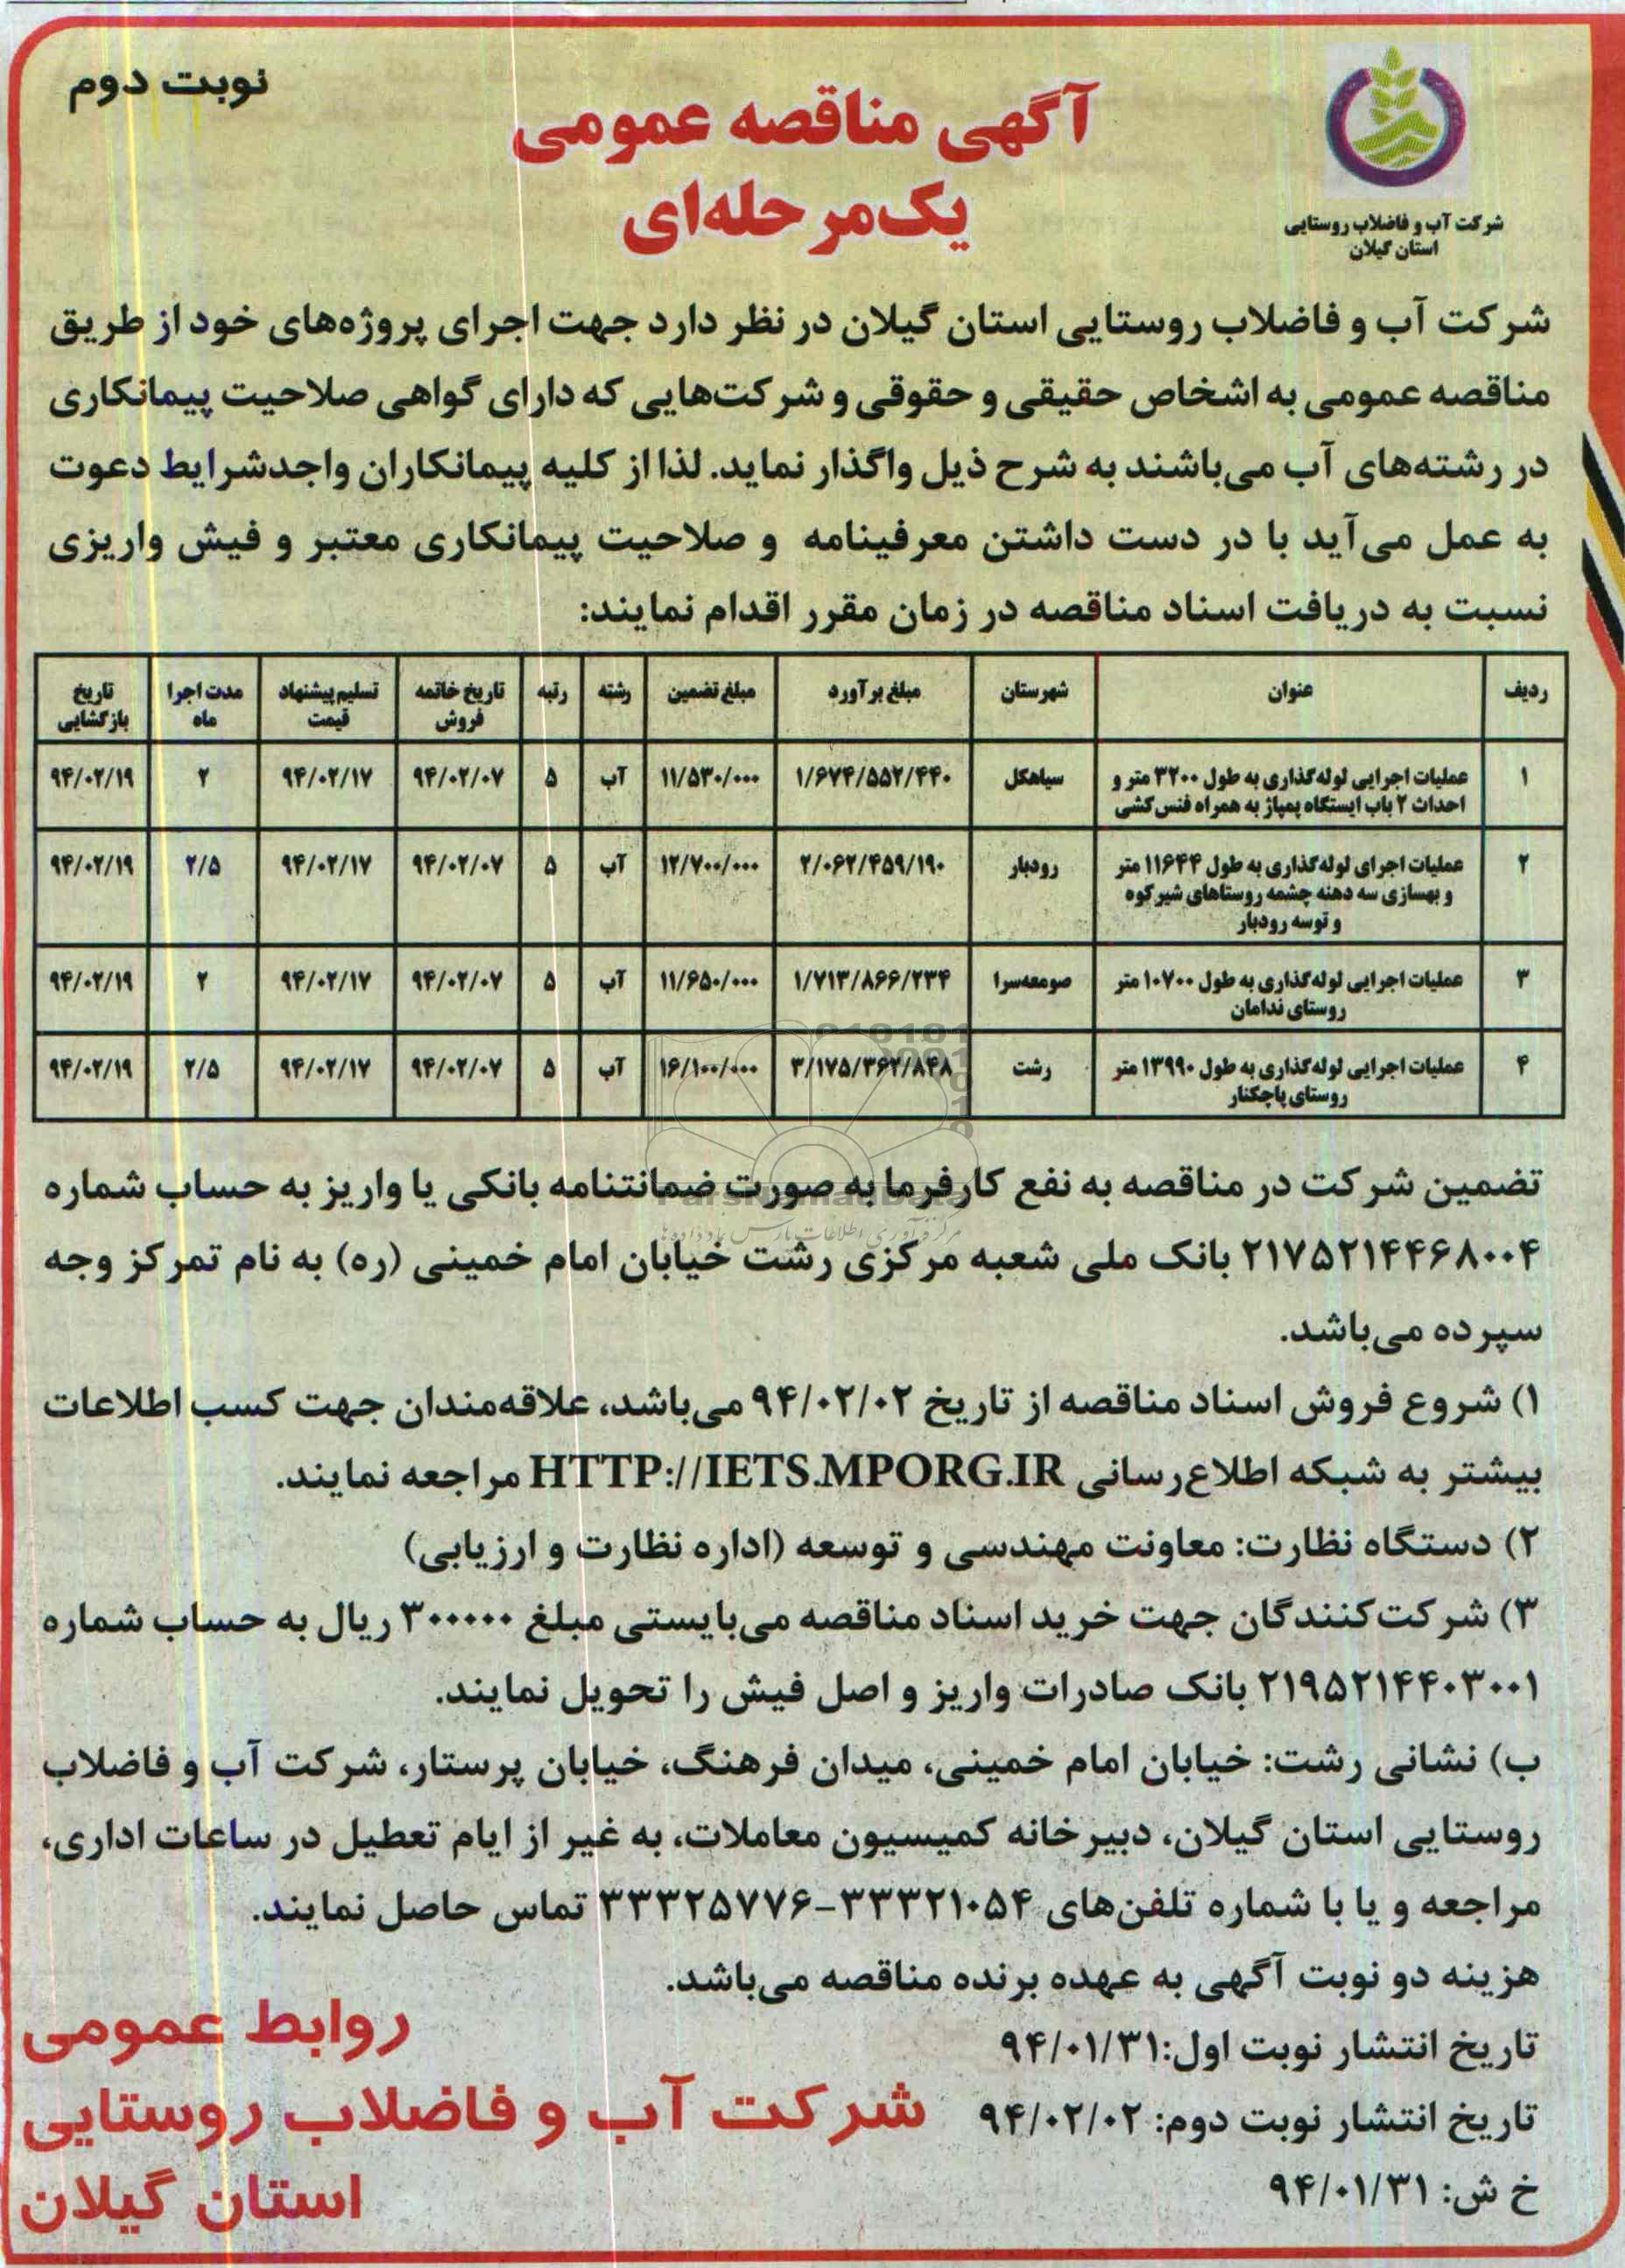 نوبت دوم
آگهی مناقصه عمومی
یک‌مرحله‌ای
شرکت آب و فاضلاب روستایی
استان گیلان
شرکت آب و فاضلاب روستایی استان گیلان در نظر دارد جهت اجرای پروژه‌های خود از طریق
مناقصه عمومی به اشخاص حقیقی و حقوقی و شرکت‌هایی که دارای گواهی صلاحیت پیمانکاری
در رشته‌های آب می‌باشند به شرح ذیل واگذار نماید. لذا از کلیه پیمانکاران واجدشرایط دعوت
به عمل می‌آید با در دست داشتن معرفینامه و صلاحیت پیمانکاری معتبر و فیش واریزی
نسبت به دریافت اسناد مناقصه در زمان مقرر اقدام نمایند:
ردیف عنوان شهرستان مبلغ برآورد مبلغ تضمین رشته رتبه تاریخ خاتمه فروش تسلیم پیشنهاد قیمت مدت اجرا ماه تاریخ بازگشایی
۱ عملیات اجرایی لوله‌گذاری به طول ۳۲۰۰ متر و سیاهکل ۱/۶۷۴/۵۵۲/۴۴۰ ۱۱/۵۳۰/۰۰۰ آب ۵ ۹۴/۰۲/۰۷ ۹۴/۰۲/۱۷ ۲ ۹۴/۰۲/۱۹
احداث ۲ باب ایستگاه پمپاژ به همراه فنس‌کشی
۲ عملیات اجرای لوله‌گذاری به طول ۱۱۶۴۴ متر رودبار ۲/۰۶۲/۴۵۹/۱۹۰ ۱۲/۷۰۰/۰۰۰ آب ۵ ۹۴/۰۲/۰۷ ۹۴/۰۲/۱۷ ۲/۵ ۹۴/۰۲/۱۹
و بهسازی سه دهنه چشمه روستاهای شیرکوه
و توسه رودبار
۳ عملیات اجرایی لوله‌گذاری به طول ۱۰۷۰۰ متر صومعه‌سرا ۱/۷۱۳/۸۶۶/۲۳۴ ۱۱/۶۵۰/۰۰۰ آب ۵ ۹۴/۰۲/۰۷ ۹۴/۰۲/۱۷ ۲ ۹۴/۰۲/۱۹
روستای ندامان
۴ عملیات اجرایی لوله‌گذاری به طول ۱۳۹۹۰ متر رشت ۳/۱۷۵/۳۶۲/۸۴۸ ۱۶/۱۰۰/۰۰۰ آب ۵ ۹۴/۰۲/۰۷ ۹۴/۰۲/۱۷ ۲/۵ ۹۴/۰۲/۱۹
روستای پاچکنار
تضمین شرکت در مناقصه به نفع کارفرما به صورت ضمانتنامه بانکی یا واریز به حساب شماره
۲۱۷۵۲۱۴۴۶۸۰۰۴ بانک ملی شعبه مرکزی رشت خیابان امام خمینی (ره) به نام تمرکز وجه
سپرده می‌باشد.
۱) شروع فروش اسناد مناقصه از تاریخ ۹۴/۰۲/۰۲ می‌باشد، علاقه‌مندان جهت کسب اطلاعات
بیشتر به شبکه اطلاع‌رسانی HTTP://IETS.MPORG.IR مراجعه نمایند.
۲) دستگاه نظارت: معاونت مهندسی و توسعه (اداره نظارت و ارزیابی)
۳) شرکت‌کنندگان جهت خرید اسناد مناقصه می‌بایستی مبلغ ۳۰۰۰۰۰ ریال به حساب شماره
۲۱۹۵۲۱۴۴۰۳۰۰۱ بانک صادرات واریز و اصل فیش را تحویل نمایند.
ب) نشانی رشت: خیابان امام خمینی، میدان فرهنگ، خیابان پرستار، شرکت آب و فاضلاب
روستایی استان گیلان، دبیرخانه کمیسیون معاملات، به غیر از ایام تعطیل در ساعات اداری،
مراجعه و یا با شماره تلفن‌های ۳۳۳۲۱۰۵۴-۳۳۳۲۵۷۷۶ تماس حاصل نمایند.
هزینه دو نوبت آگهی به عهده برنده مناقصه می‌باشد.
تاریخ انتشار نوبت اول:۹۴/۰۱/۳۱
تاریخ انتشار نوبت دوم: ۹۴/۰۲/۰۲
خ ش: ۹۴/۰۱/۳۱
روابط عمومی
شرکت آب و فاضلاب روستایی
استان گیلان